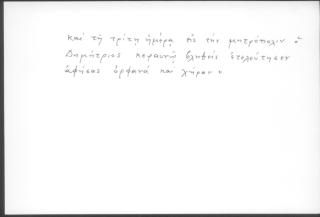 καὶ τῇ τρίτῃ ἡμέρᾳ εἰς τὴν μητρόπολιν ὁ
Δημήτριος κεραυνῷ βληθεὶς ἐτελεύτησεν
ἀφήσας ὀρφανὰ καὶ χήραν